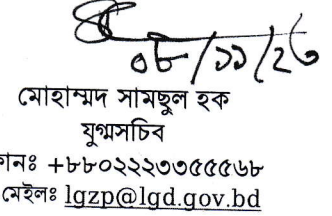 ০৮/১১/২৩
মোহাম্মদ সামছুল হক
যুগ্মসচিব
ফোনঃ +৮৮০২২২৩৩৫৫৫৬৮
মেইলঃ lgzp@lgd.gov.bd